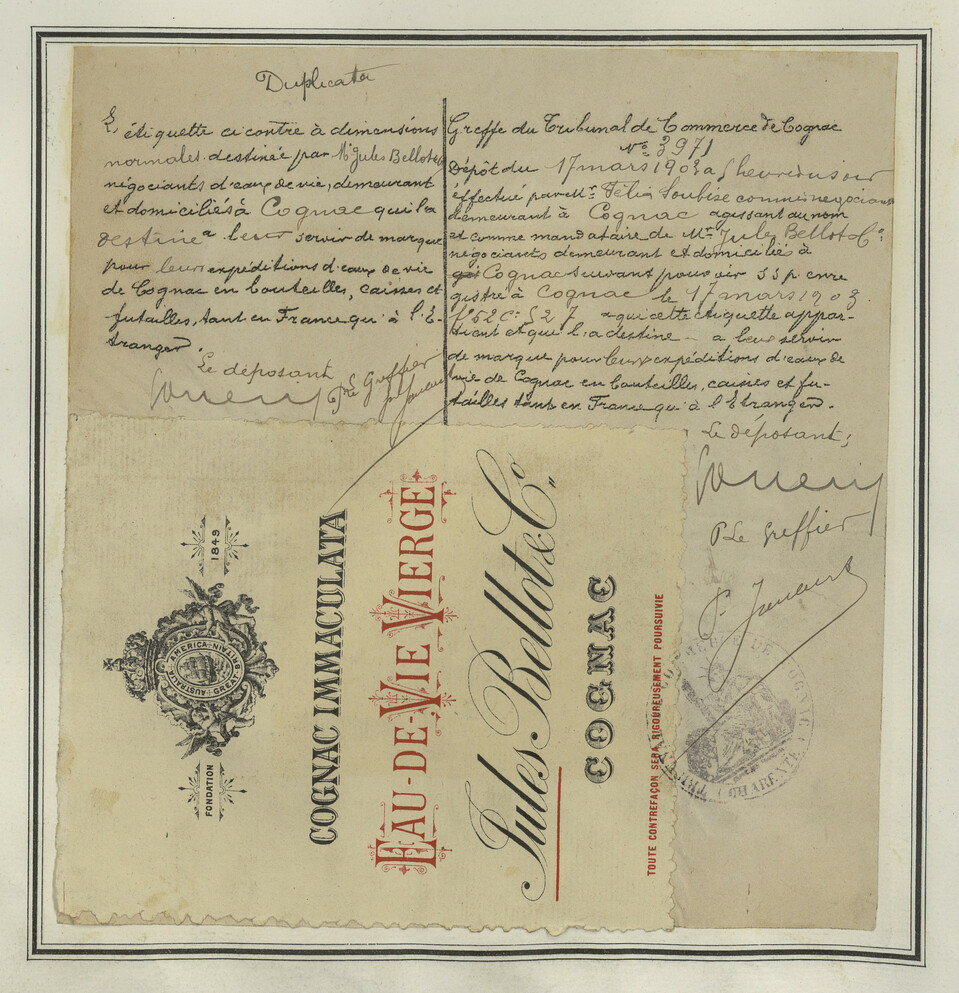 Duplicata
L'étiquette ci contre à dimensions
normales destinée par Mr Jules Bellot & Co
négociants d'eaux de vie, demeurant
et domiciliés à Cognac qui la
destine a leur servir de marque
pour leurs expéditions d'eaux de vie
de Cognac en bouteilles, caisses et
futailles, tant en France qu'à l'É-
tranger.
Le déposant
P. Le Greffier
Greffe du Tribunal de Commerce de Cognac
No 3971
Dépôt du 17 mars 1903 à heure du soir
éffectué par Mr Félix Soubise commis négociant
demeurant à Cognac agissant au nom
et comme mandataire de Mrs Jules Bellot & Co
négociants demeurant et domiciliés à
Cognac suivant pouvoir ssp enre
gistré à Cognac le 17 mars 1903
fo 52 Co 527 que cette étiquette appar-
tient et qu'il a destine a leur servir
de marque pour leurs expéditions d'eaux de
vie de Cognac en bouteilles, caisses et fu-
tailles tant en France qu'à l'Etranger.
Le déposant,
P Le Greffier
FONDATION 1849
AUSTRALIA AMERICA GREAT-BRITAIN
COGNAC IMMACULATA
EAU-DE-VIE VIERGE
Jules Bellot & Co
COGNAC
TOUTE CONTREFAÇON SERA RIGOUREUSEMENT POURSUIVIE
TRIBUNAL DE COMMERCE DE COGNAC (CHARENTE)